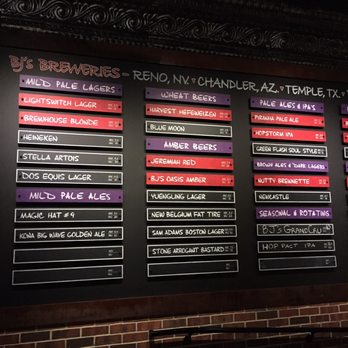 BJ's BREWERIES RENO, NV. CHANDLER, AZ. TEMPLE, TX.
MILD PALE LAGERS
LIGHTSWITCH LAGER
BREWHOUSE BLONDE
HEINEKEN
STELLA ARTOIS
DOS EQUIS LAGER
MILD PALE ALES
MAGIC HAT #9
KONA BIG WAVE GOLDEN ALE
WHEAT BEERS
HARVEST HEFEWEIZEN
BLUE MOON
AMBER BEERS
JEREMIAH RED
BJ'S OASIS AMBER
YUENGLING LAGER
NEW BELGIUM FAT TIRE
SAM ADAMS BOSTON LAGER
STONE ARROGANT BASTARD
PALE ALES & IPA'S
PIRANHA PALE ALE
HOPSTORM IPA
GREEN FLASH SOUL STYLE
BROWN ALES & DARK LAGERS
NUTTY BREWNETTE
NEWCASTLE
SEASONAL & ROTATING
BJ'S GRAND CRU
HOP PACT IPA